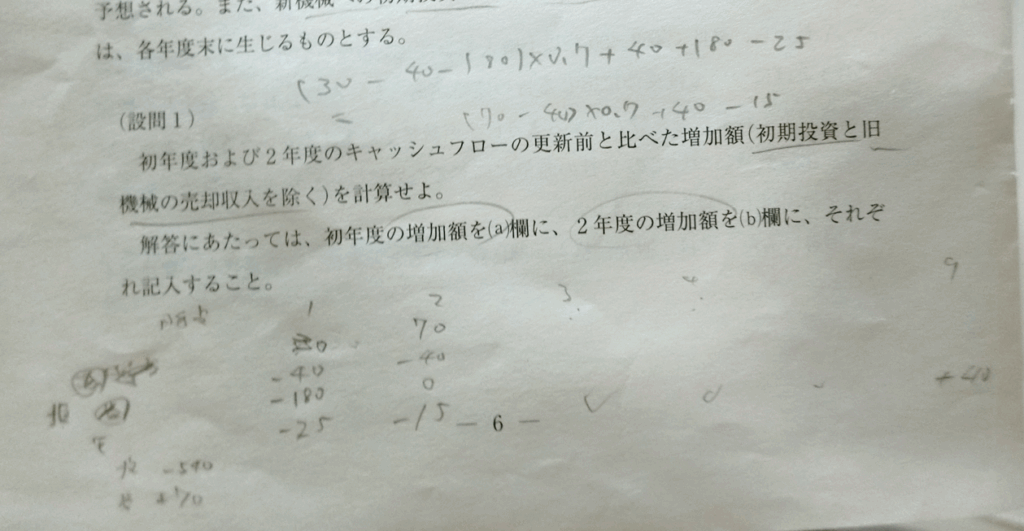 予想される。また、新機械への初期投資
は、各年度末に生じるものとする。
(30 - 40 - 180)×0.7 + 40 + 180 - 25
= (70 - 40)×0.7 + 40 - 15
(設問1)
初年度および2年度のキャッシュフローの更新前と比べた増加額(初期投資と旧
機械の売却収入を除く)を計算せよ。
解答にあたっては、初年度の増加額を(a)欄に、2年度の増加額を(b)欄に、それぞ
れ記入すること。
1 2 3 4 9
30 70
-40 -40
-180 0 +40
-25 -15
― 6 ―
投 -540
+70